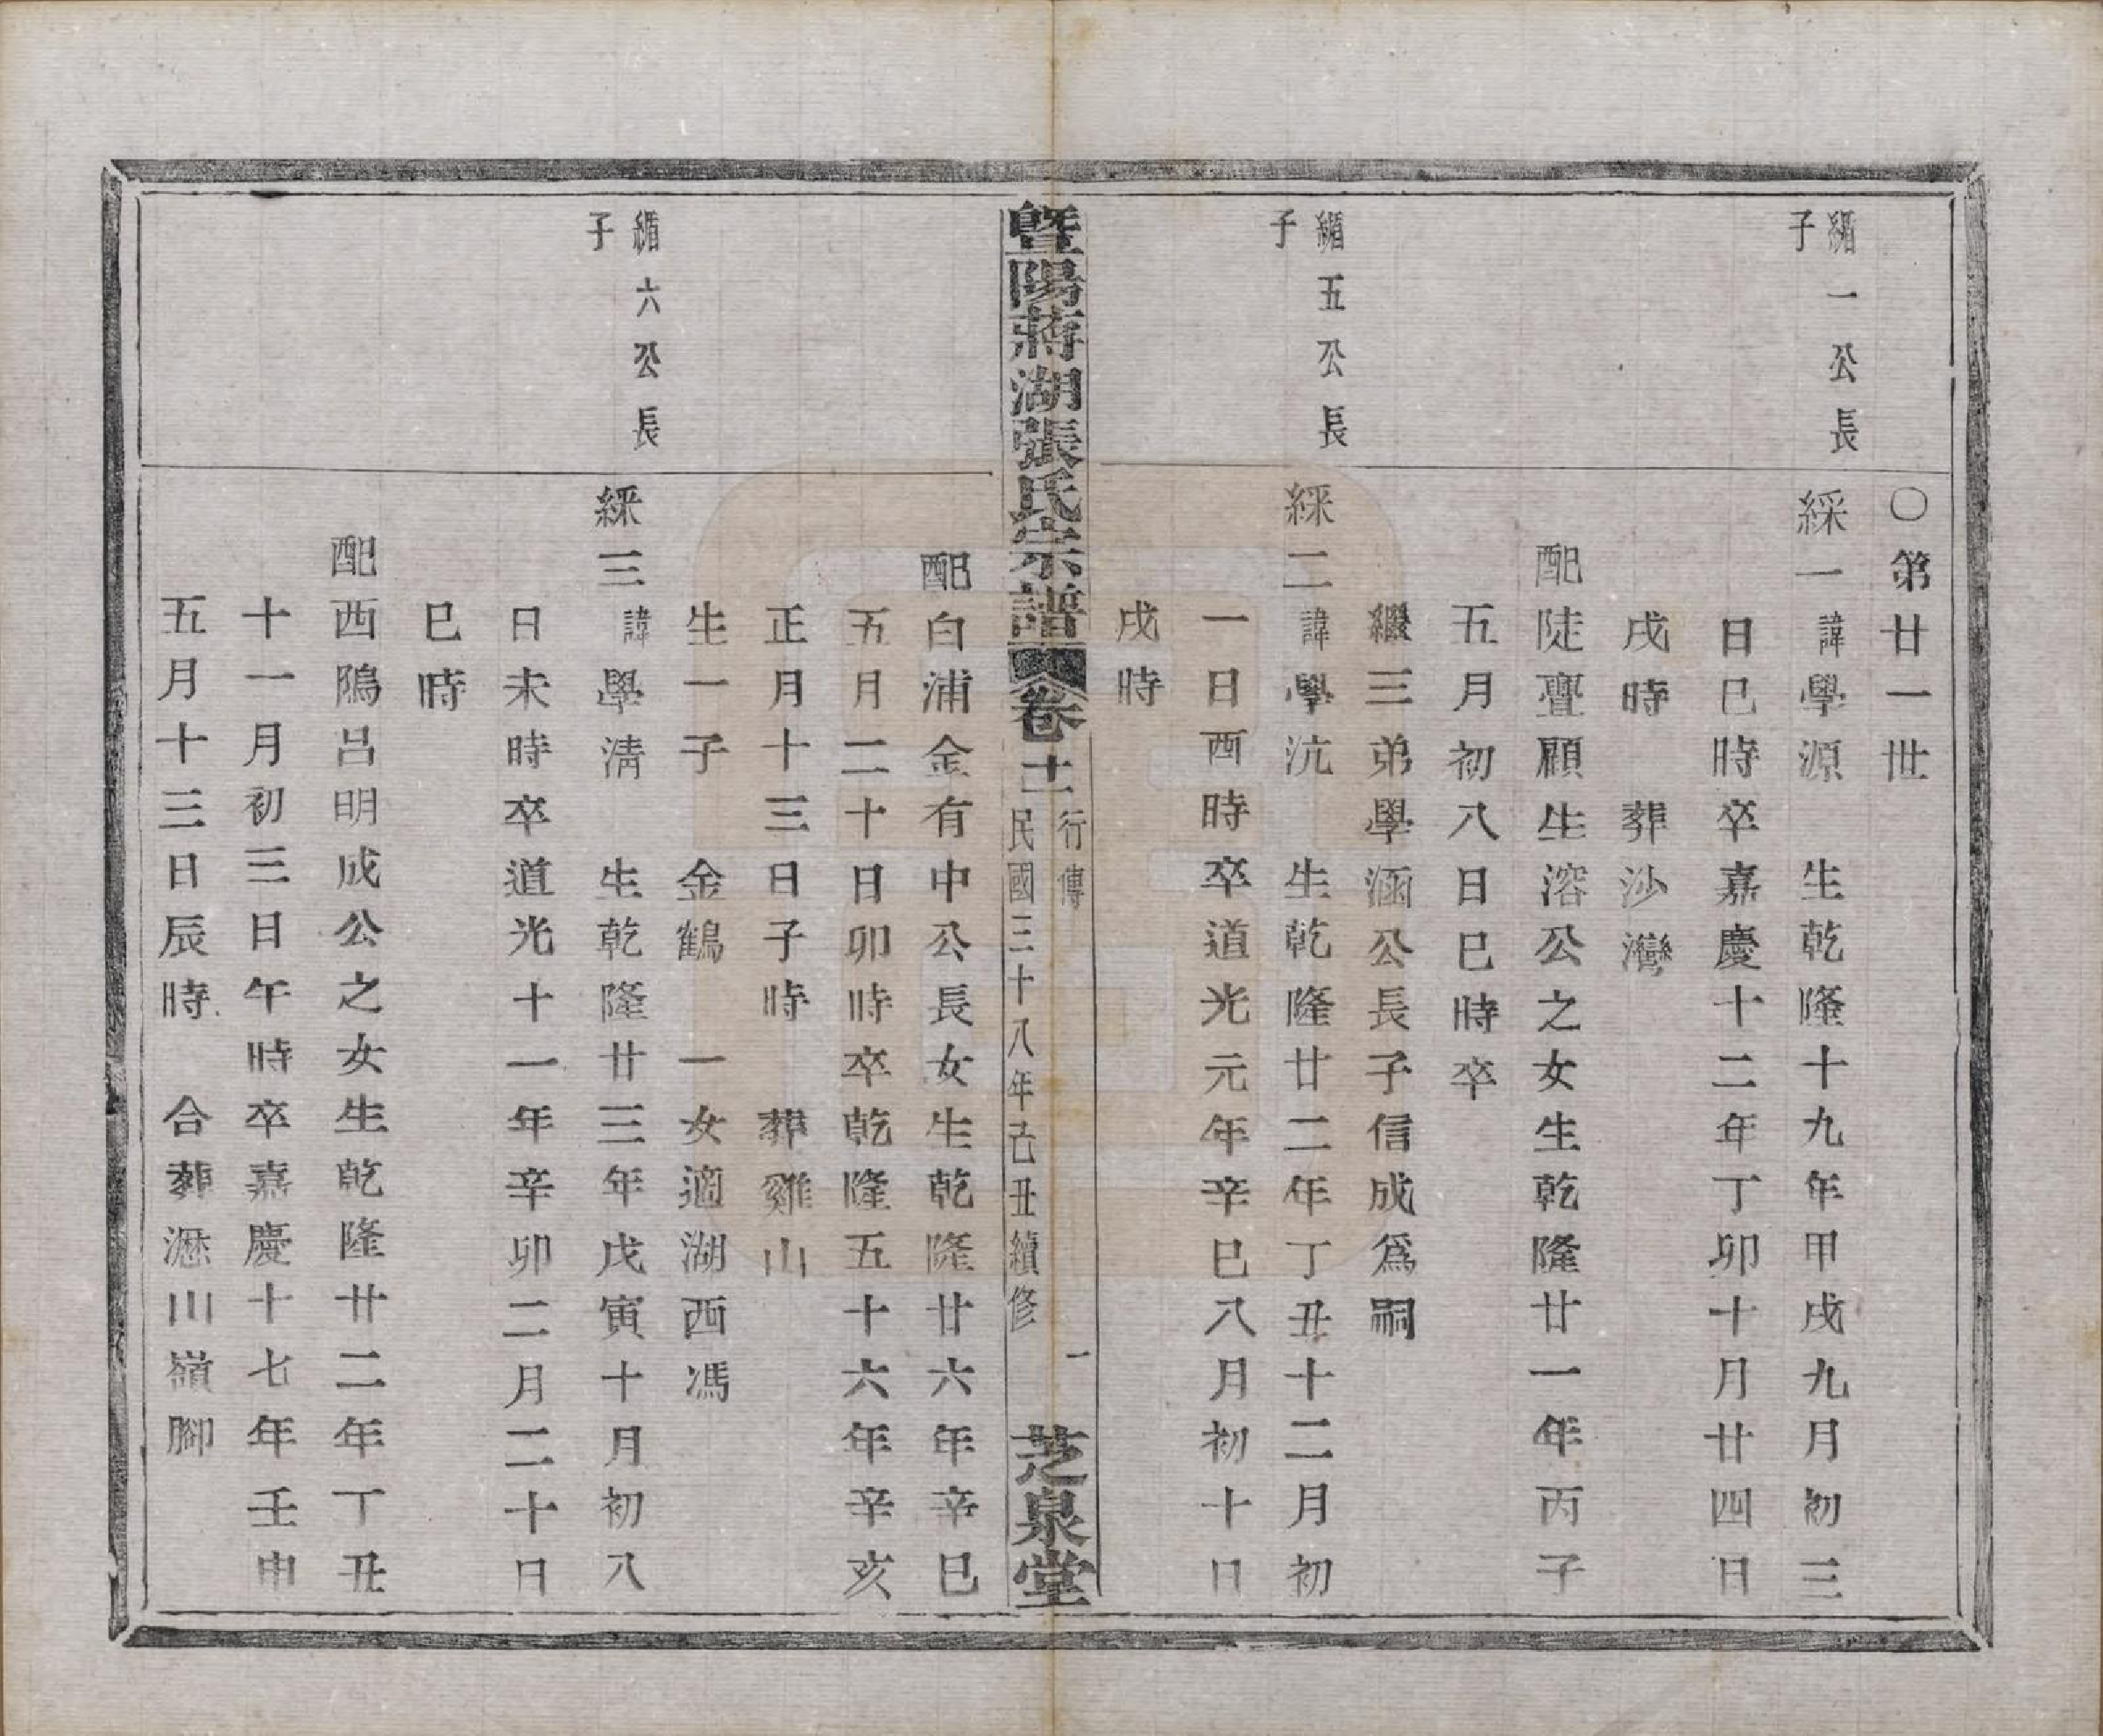 〇第廿一世
緢一公長
子
綵一諱學源 生乾隆十九年甲戌九月初三
日巳時卒嘉慶十二年丁卯十月廿四日
戌時 葬沙灣
配陡亹顧生溶公之女生乾隆廿一年丙子
五月初八日巳時卒
繼三弟學涵公長子信成爲嗣
緢五公長
子
綵二諱學沆 生乾隆廿二年丁丑十二月初
一日酉時卒道光元年辛巳八月初十日
戌時
暨陽蔣湖張氏宗譜卷十一 行傳 民國三十八年己丑續修 一 芝泉堂
配白浦金有中公長女生乾隆廿六年辛巳
五月二十日卯時卒乾隆五十六年辛亥
正月十三日子時 葬雞山
生一子 金鶴 一女適湖西馮
緢六公長
子
綵三諱學淸 生乾隆廿三年戊寅十月初八
日未時卒道光十一年辛卯二月二十日
巳時
配西隝呂明成公之女生乾隆廿二年丁丑
十一月初三日午時卒嘉慶十七年壬申
五月十三日辰時 合葬山嶺腳